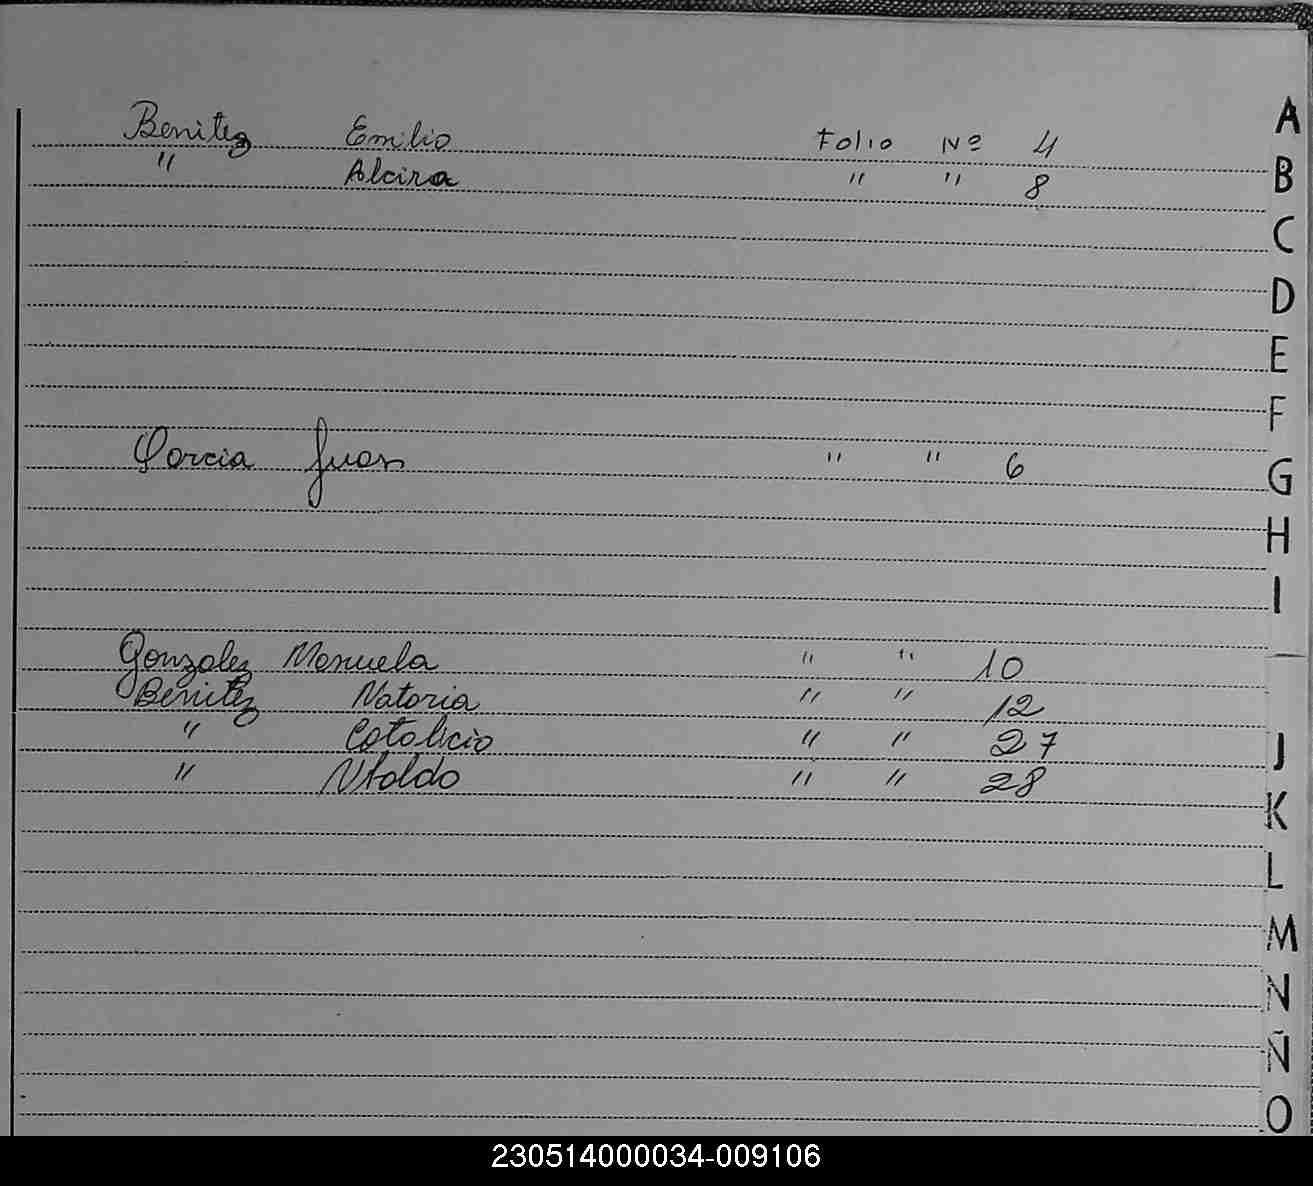 Benitez Emilio Folio Nº 4
" Alcira " " 8
Garcia Juan " " 6
Gonzalez Manuela " " 10
Benitez Natoria " " 12
" Catalicio " " 27
" Ubaldo " " 28
A
B
C
D
E
F
G
H
I
J
K
L
M
N
Ñ
O
230514000034-009106